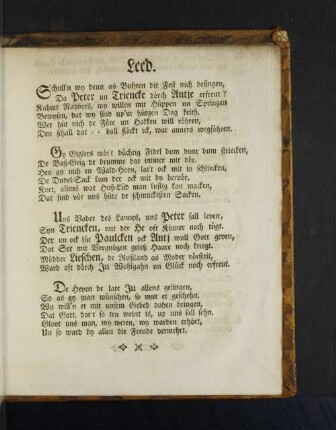 Leed.
Schull'n wy denn as Buhren dit Fest nich besingen,
Da Peter un Triencke dörch Antje erfreut?
Kahmt Naybers, wy willen mit Hüppen un Springen
Bewysen, dat wy sünd up'n hütgen Dag
Wer hüt nich de Föte un Hakken will röhren,
Den schall dat - - dall stöckt ick, wat anners wegföhren.
Gy Giglers möt't düchtig Fidel dum dum dum striecken,
De Baß-Geig de brumme dar immer mit dör.
Heo gy nich en Wald-Horn, lat't ock mit in schliecken,
De Dudel-Sack kam der ock mit by hervör.
Kort, allens wat Huß-Lüd man lustig kan macken,
Dat sünd vör uns hüte de schmuckesten Sacken.
Uns Vader des Lannes, uns Peter sall leven,
Syn Triencken, mit der He oft Kinner noch tügt.
Der un ock lütt Paulcken ock Antj wull Gott geven,
Dat See mit Vergnögen grieß Haare noch kriegt.
Mödder Lieschen, de Rußland as Moder vörsteit,
Ward oft dörch Ju Wohlgahn un Glück noch erfreut.
De Heven de late Ju allens gelingen,
So as gy man wünschen, so mut et geschehn.
Wy will'n et mit unsem Gebed dahen bringen,
Dat Gott, dar't so tru meint is, up uns sall sehn.
Glovt uns man, wy weten, wy warden erhört,
Un so ward by allen die Freude vermehrt.